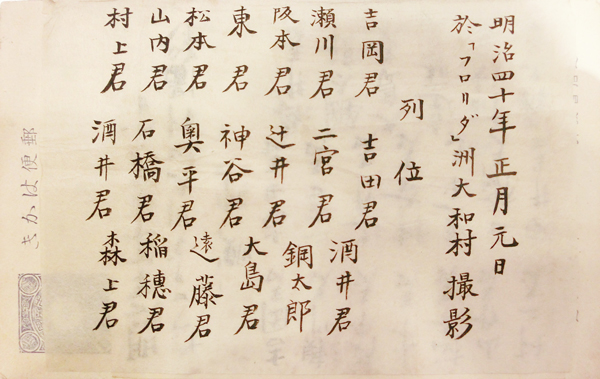 明治四十年正月元日
於「フロリダ」洲大和村撮影
列位
吉岡君 吉田君 酒井君
瀬川君 二宮君 鋼太郎
阪本君 辻井君 大島君
東君 神谷君 遠藤君
松本君 奥平君 稲穂君
山内君 石橋君 森上君
村上君 酒井君
郵便はかき